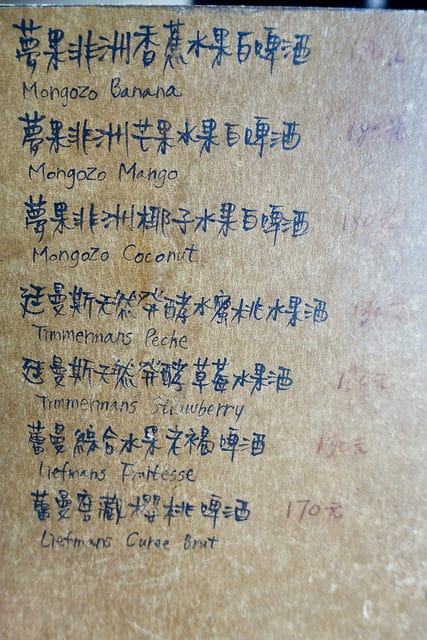 夢果非洲香蕉水果白啤酒
Mongozo Banana
夢果非洲芒果水果白啤酒
Mongozo Mango
夢果非洲椰子水果白啤酒
Mongozo Coconut
廷曼斯天然發酵水蜜桃水果酒
Timmermans Peche
廷曼斯天然發酵草莓水果酒
Timmermans Strawberry
蕾曼綜合水果老褐啤酒
Liefmans Fruitesse
蕾曼窖藏櫻桃啤酒 170元
Liefmans Curee Brut